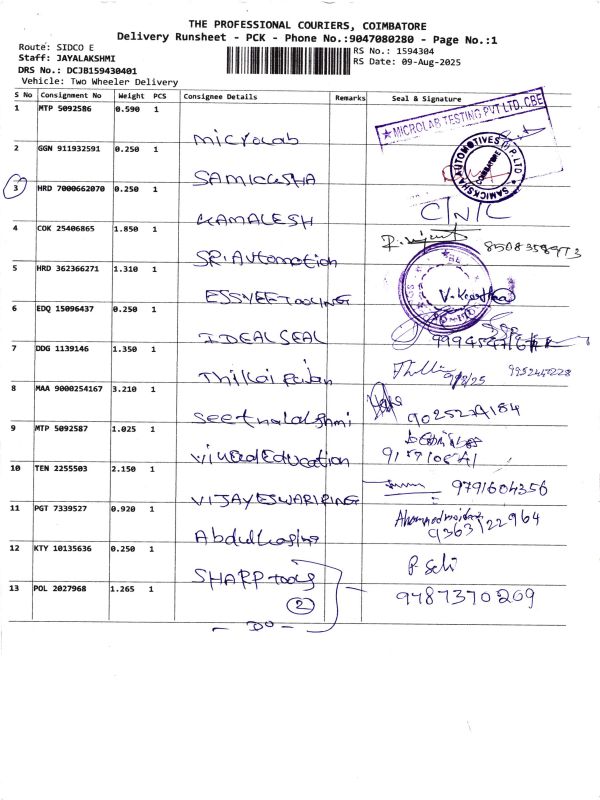 THE PROFESSIONAL COURIERS, COIMBATORE
Delivery Runsheet - PCK - Phone No.:9047080280 - Page No.:1
Route: SIDCO E
RS No.: 1594304
Staff: JAYALAKSHMI
RS Date: 09-Aug-2025
DRS No.: DCJB159430401
Vehicle: Two Wheeler Delivery
S No Consignment No Weight PCS Consignee Details Remarks Seal & Signature
1 MTP 5092586 0.590 1 Microlab
★ MICROLAB TESTING PVT LTD, CBE
2 GGN 911932591 0.250 1 SAMICKSHA
SAMICKSHA AUTOMOTIVES (P) LTD
COIMBATORE
3 HRD 7000662070 0.250 1 KAMALESH C/N/C
4 COK 25406865 1.850 1 SR. Automation
5 HRD 362366271 1.310 1 ESSYEE TOOLING
6 EDQ 15096437 0.250 1 IDEAL SEAL
7 DDG 1139146 1.350 1 9/8/25
8 MAA 9000254167 3.210 1 Seethalakshmi
9 MTP 5092587 1.025 1
10 TEN 2255503 2.150 1 9791604356
11 PGT 7339527 0.920 1
12 KTY 10135636 0.250 1 SHARP Tools
2
13 POL 2027968 1.265 1 - Do - 9787370209